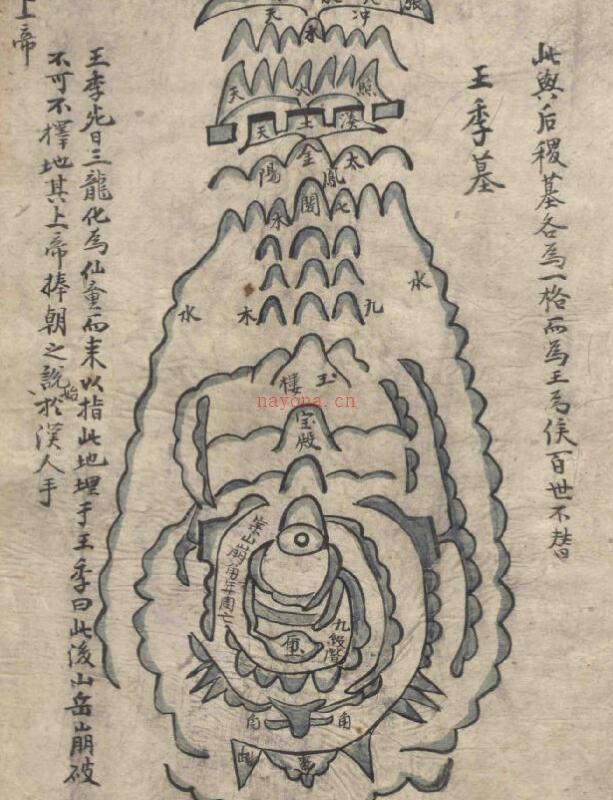 此與后稷墓各爲一格而爲王爲侯百世不替
王季墓
張
天
冲
水
天
火
熊
天
土
湊
陽
金
鳳
太
水
閣
七
水
水
木
孔
玉
樓
宝殿
崇山崩角年周亡
九級階
角
角
上帝
王季先日三龍化爲仙童而来以指此地埋于王季曰此後山岳崩破
不可不擇地其上帝捧朝之説始於漢人手
nayona.cn